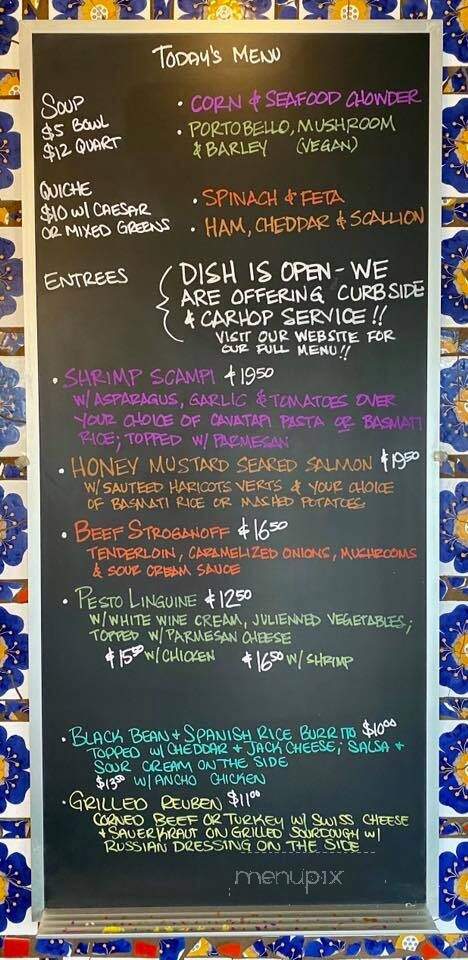 TODAY'S MENU
SOUP
$5 BOWL
$12 QUART
• CORN & SEAFOOD CHOWDER
• PORTOBELLO, MUSHROOM
& BARLEY (VEGAN)
QUICHE
$10 W/ CAESAR
OR MIXED GREENS
• SPINACH & FETA
• HAM, CHEDDAR & SCALLION
ENTREES
DISH IS OPEN - WE
ARE OFFERING CURBSIDE
& CARHOP SERVICE !!
VISIT OUR WEBSITE FOR
OUR FULL MENU !!
• SHRIMP SCAMPI $19.50
W/ ASPARAGUS, GARLIC & TOMATOES OVER
YOUR CHOICE OF CAVATAPI PASTA OR BASMATI
RICE; TOPPED W/ PARMESAN
• HONEY MUSTARD SEARED SALMON $19.50
W/ SAUTEED HARICOTS VERTS & YOUR CHOICE
OF BASMATI RICE OR MASHED POTATOES
• BEEF STROGANOFF $16.50
TENDERLOIN, CARAMELIZED ONIONS, MUSHROOMS
& SOUR CREAM SAUCE
• PESTO LINGUINE $12.50
W/ WHITE WINE CREAM, JULIENNED VEGETABLES;
TOPPED W/ PARMESAN CHEESE
$15.50 W/ CHICKEN $16.50 W/ SHRIMP
• BLACK BEAN & SPANISH RICE BURRITO $10.00
TOPPED W/ CHEDDAR & JACK CHEESE; SALSA &
SOUR CREAM ON THE SIDE
$13.50 W/ ANCHO CHICKEN
• GRILLED REUBEN $11.00
CORNED BEEF OR TURKEY W/ SWISS CHEESE
& SAUERKRAUT ON GRILLED SOURDOUGH W/
RUSSIAN DRESSING ON THE SIDE
menupix